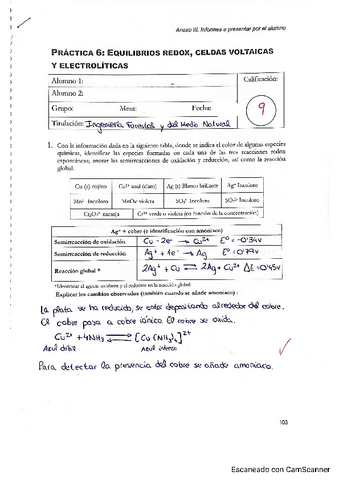 Anexo III. Informes a presentar por el alumno
PRÁCTICA 6: EQUILIBRIOS REDOX, CELDAS VOLTAICAS
Y ELECTROLÍTICAS
Alumno 1:
Calificación:
Alumno 2:
9
Grupo: Mesa: Fecha:
Titulación: Ingeniería Forestal y del Medio Natural
1. Con la información dada en la siguiente tabla, donde se indica el color de algunas especies
químicas, identificar las especies formadas en cada una de las tres reacciones redox
espontáneas; anotar las semirreacciones de oxidación y reducción, así como la reacción
global.
Cu (s) rojizo Cu²⁺ azul (claro) Ag (s) Blanco brillante Ag⁺ Incoloro
Mn²⁺ Incoloro MnO₄⁻ violeta SO₄²⁻ Incoloro SO₃²⁻ Incoloro
Cr₂O₇²⁻ naranja Cr³⁺ verde o violeta (en función de la concentración)
Ag⁺ + cobre (e identificación con amoniaco)
Semirreacción de oxidación Cu - 2e⁻ → Cu²⁺ E° = -0'34V
Semirreacción de reducción Ag⁺ + 1e⁻ → Ag E° = 0'79V
Reacción global * 2Ag⁺ + Cu ⇌ 2Ag + Cu²⁺ ΔE = 0'45V
*Identificar el agente oxidante y el reductor en la reacción global
Explicar los cambios observados (también cuando se añade amoniaco):
La plata se ha reducido, se está depositando alrededor del cobre.
El cobre pasa a cobre iónico. El cobre se oxida.
Cu²⁺ + 4NH₃ ⇌ [Cu(NH₃)₄]²⁺
Azul Azul intenso
Para detectar la presencia del cobre se añade amoniaco.
103
Escaneado con CamScanner